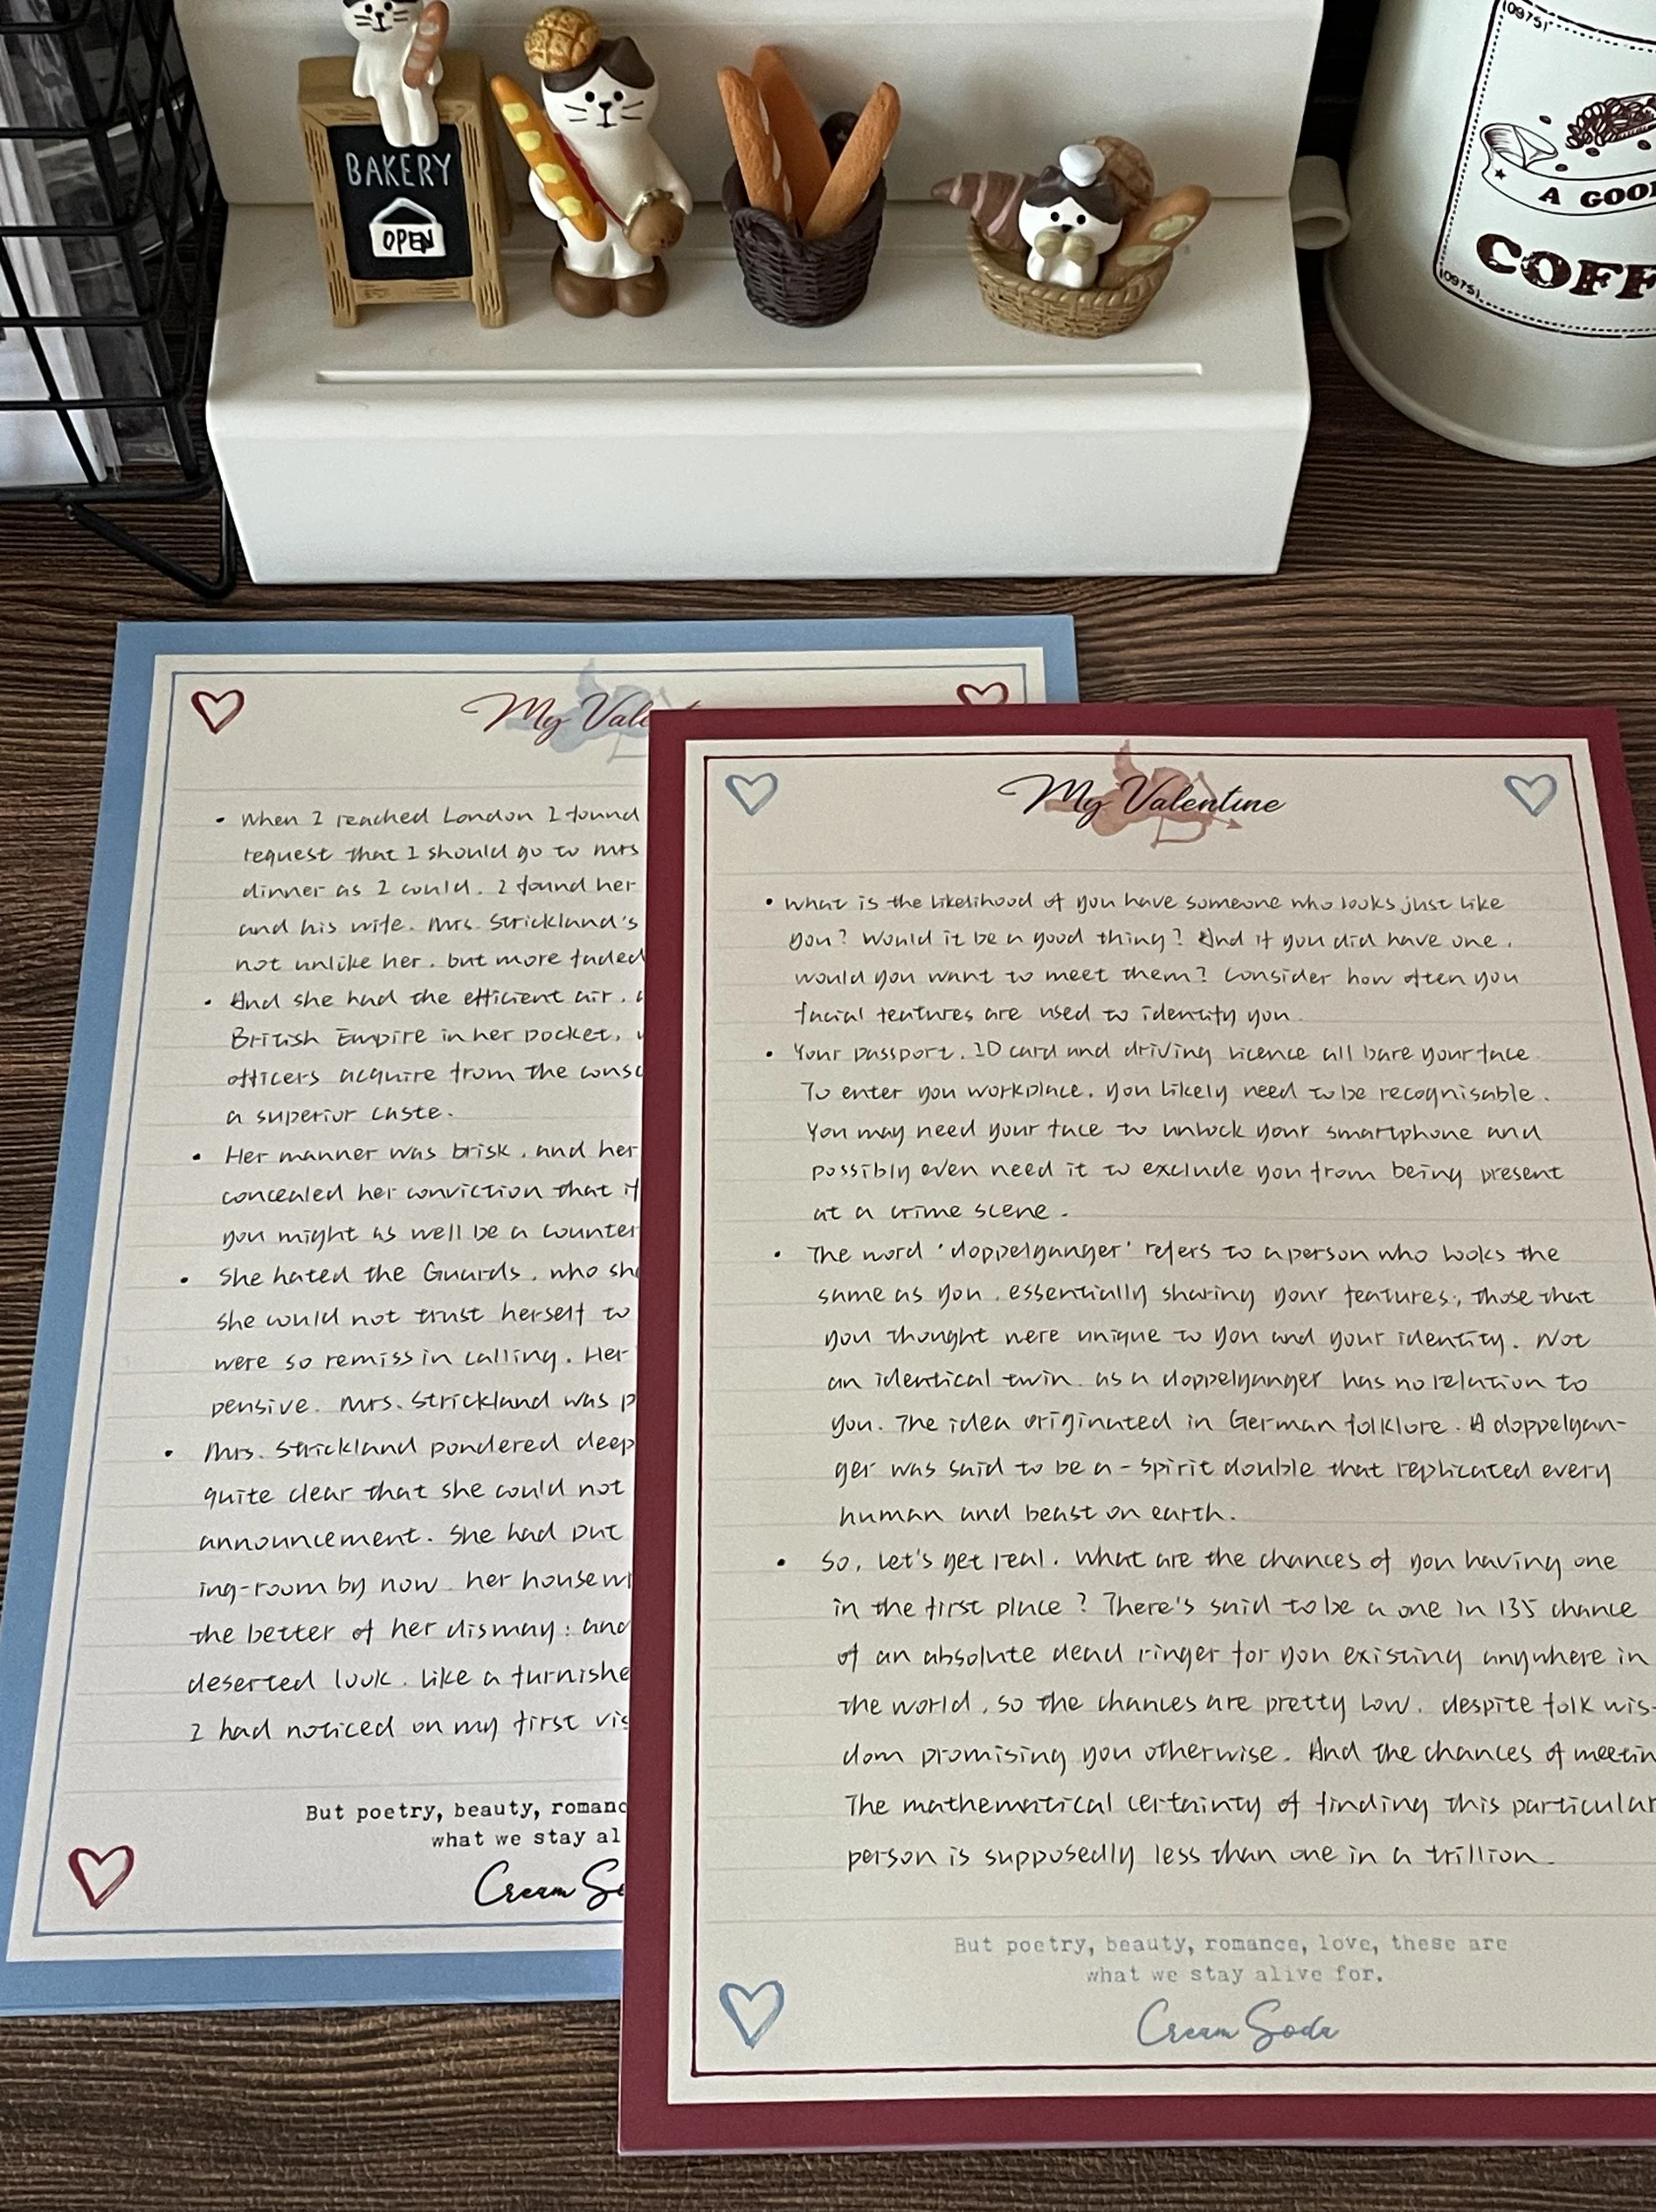 BAKERY
OPEN
(09751)
A GOO
COFF
(09751)
My Vale
• When I reached London I found
request that I should go to Mrs
dinner as I could. I found her
and his wife. Mrs. Strickland's
not unlike her, but more faded
• And she had the efficient air,
British Empire in her pocket,
officers acquire from the consc
a superior caste.
• Her manner was brisk, and her
concealed her conviction that if
you might as well be a counter
• She hated the Guards, who she
she could not trust herself to
were so remiss in calling. Her
pensive. Mrs. Strickland was p
• Mrs. Strickland pondered deep
quite clear that she could not
announcement. She had put
ing-room by now, her housewi
the better of her dismay: and
deserted look, like a furnishe
I had noticed on my first vis
But poetry, beauty, romanc
what we stay al
Cream So
My Valentine
• What is the likelihood of you have someone who looks just like
you? Would it be a good thing? And if you did have one,
would you want to meet them? Consider how often you
facial features are used to identify you.
• Your passport, ID card and driving licence all bare your face.
To enter you workplace, you likely need to be recognisable.
You may need your face to unlock your smartphone and
possibly even need it to exclude you from being present
at a crime scene.
• The word 'doppelganger' refers to a person who looks the
same as you, essentially sharing your features, those that
you thought were unique to you and your identity. Not
an identical twin, as a doppelganger has no relation to
you. The idea originated in German folklore. A doppelgan-
ger was said to be a-spirit double that replicated every
human and beast on earth.
• So, let's get real. What are the chances of you having one
in the first place? There's said to be a one in 135 chance
of an absolute dead ringer for you existing anywhere in
the world, so the chances are pretty low, despite folk wis-
dom promising you otherwise. And the chances of meetin
The mathematical certainty of finding this particular
person is supposedly less than one in a trillion.
But poetry, beauty, romance, love, these are
what we stay alive for.
Cream Soda